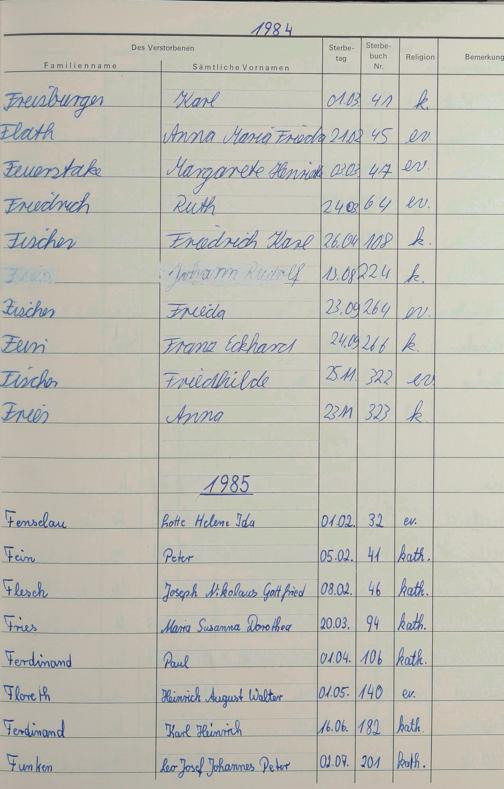 1984
Des Verstorbenen Sterbe- tag Sterbe- buch Nr. Religion Bemerkung
Familienname Sämtliche Vornamen
Freisburger Karl 01.03 41 k.
Flath Anna Maria Frieda 21.02 45 ev.
Feuerstake Margarete Henriette 03.03 47 ev.
Friedrich Ruth 24.03 64 ev.
Fischer Friedrich Karl 26.04 108 k.
Johann Rudolf 13.08 224 k.
Fischer Frieda 23.09 264 ev.
Franz Eckhard 24.09 266 k.
Fischer Friedhilde 25.11. 322 ev
Fries Anna 23.11 323 k
1985
Fenselau Lotte Helene Ida 01.02. 32 ev.
Fein Peter 05.02. 41 kath.
Flesch Joseph Nikolaus Gottfried 08.02. 46 kath.
Fries Maria Susanna Dorothea 20.03. 94 kath.
Ferdinand Paul 01.04. 106 kath.
Floreth Heinrich August Walter 01.05. 140 ev.
Ferdinand Karl Heinrich 16.06. 182 kath.
Funken Leo Josef Johannes Peter 02.07. 201 kath.